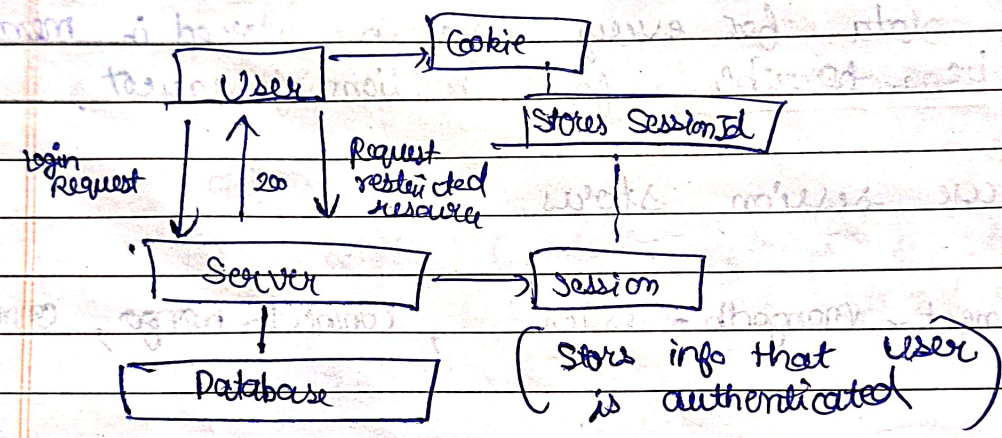 Cookie
User
Stores SessionId
Login
Request
200
Request
restricted
resource
Server
Session
Database
(Stors info that user
is authenticated)